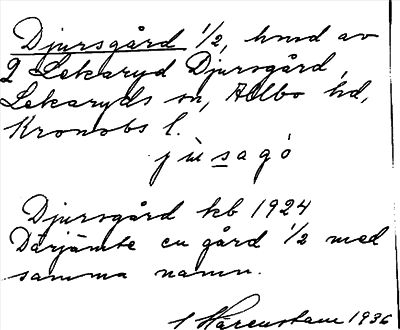 Djursgård 1/2, hmd av
2 Lekaryd Djursgård,
Lekaryds sn, Allbo hd,
Kronobs l.
jùsagó
Djursgård kb 1924
Därjämte en gård 1/2 med
samma namn.
Härenstam 1936